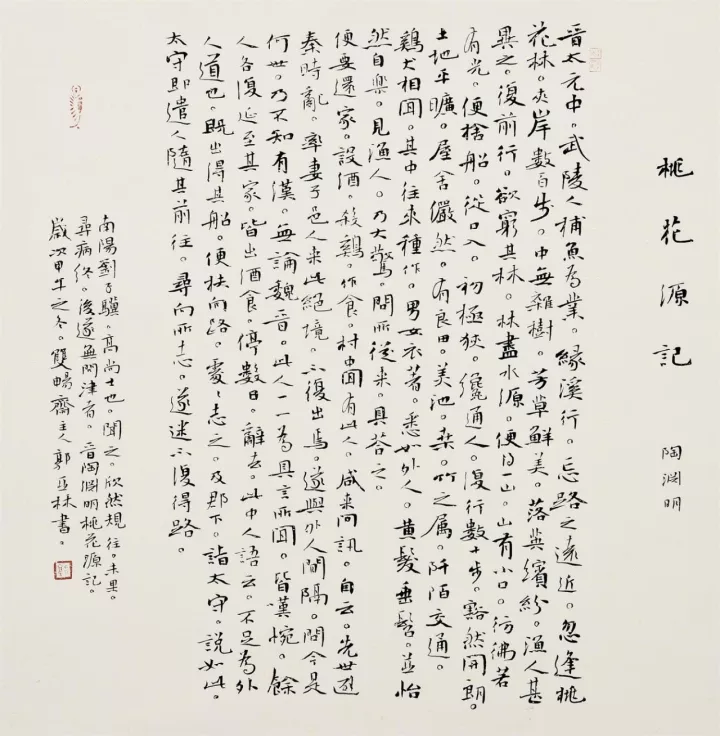 桃花源記
陶淵明
晉太元中。武陵人捕魚為業。緣溪行。忘路之遠近。忽逢桃
花林。夾岸數百步。中無雜樹。芳草鮮美。落英繽紛。漁人甚
異之。復前行。欲窮其林。林盡水源。便得一山。山有小口。彷彿若
有光。便捨船。從口入。初極狹。纔通人。復行數十步。豁然開朗。
土地平曠。屋舍儼然。有良田。美池。桑。竹之属。阡陌交通。
鷄犬相聞。其中往來種作。男女衣著。悉如外人。黄髮垂髫。並怡
然自樂。見漁人。乃大驚。問所從来。具荅之。
便要還家。設酒。殺鷄。作食。村中聞有此人。咸来問訊。自云。先世避
秦時亂。率妻子邑人来此絕境。不復出焉。遂與外人間隔。問今是
何世。乃不知有漢。無論魏晉。此人一一為具言所聞。皆嘆惋。餘
人各復延至其家。皆出酒食。停數日。辭去。此中人語云。不足為外
人道也。既出得其船。便扶向路。處々志之。及郡下。詣太守。說如此。
太守即遣人隨其前往。尋向所志。遂迷不復得路。
南陽劉子驥。高尚士也。聞之。欣然規往。未果。
尋病終。後遂無問津者。晉陶淵明桃花源記。
歲次甲午之冬。雙暢齋主人郭亞林書。